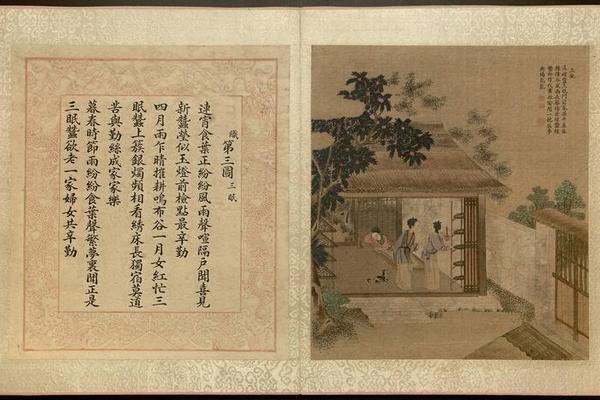 織第三圖 三眠
連宵食葉正紛紛風雨聲喧隔戶聞喜見
新蠶瑩似玉燈前檢點最辛勤
四月雨乍晴催耕鳴布谷一月女紅忙三
眠蠶上簇銀燭頻相看綉床長獨宿莫道
苦與勤絲成家家樂
暮春時節雨紛紛食葉聲繁夢裏聞正是
三眠蠶欲老一家婦女共辛勤
三眠